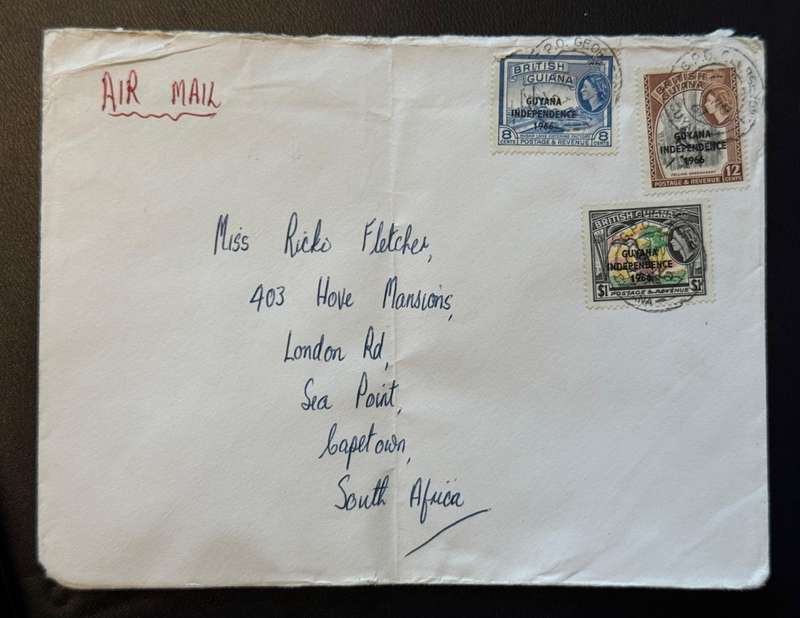 AIR MAIL
G.P.O. GEORGETOWN
BRITISH
GUIANA
GUYANA
INDEPENDENCE
1966
8 CENTS
POSTAGE & REVENUE
8 CENTS
BRITISH
GUIANA
GUYANA
INDEPENDENCE
1966
POSTAGE & REVENUE
12 CENTS
BRITISH GUIANA
GUYANA
INDEPENDENCE
1966
$1
POSTAGE & REVENUE
$1
Miss Ricki Fletcher,
403 Hove Mansions,
London Rd,
Sea Point,
Capetown,
South Africa